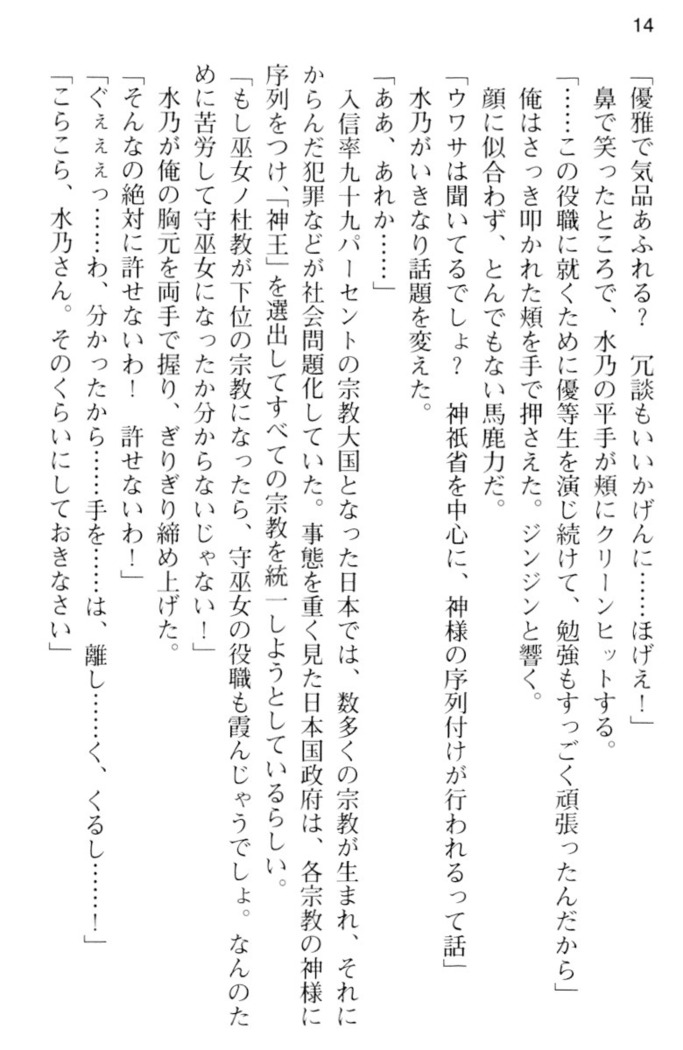 14
「優雅で気品あふれる？　冗談もいいかげんに……ほげえ！」
　鼻で笑ったところで、水乃の平手が頬にクリーンヒットする。
「……この役職に就くために優等生を演じ続けて、勉強もすっごく頑張ったんだから」
　俺はさっき叩かれた頬を手で押さえた。ジンジンと響く。
　顔に似合わず、とんでもない馬鹿力だ。
「ウワサは聞いてるでしょ？　神祇省を中心に、神様の序列付けが行われるって話」
　水乃がいきなり話題を変えた。
「ああ、あれか……」
　入信率九十九パーセントの宗教大国となった日本では、数多くの宗教が生まれ、それに
からんだ犯罪などが社会問題化していた。事態を重く見た日本国政府は、各宗教の神様に
序列をつけ、「神王」を選出してすべての宗教を統一しようとしているらしい。
「もし巫女ノ杜教が下位の宗教になったら、守巫女の役職も霞んじゃうでしょ。なんのた
めに苦労して守巫女になったか分からないじゃない！」
　水乃が俺の胸元を両手で握り、ぎりぎり締め上げた。
「そんなの絶対に許せないわ！　許せないわ！」
「ぐぇぇぇっ……わ、分かったから……手を……は、離し……く、くるし……！」
「こらこら、水乃さん。そのくらいにしておきなさい」